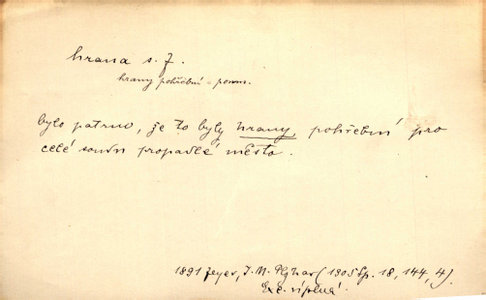 hrana s. f.
hrany pohřební
bylo patrno, že to byly hrany, pohřební pro
celé propadlé město.
1891 Zeyer, J. M. Plojhar (1905 Sp. 18, 144, 4).
Exc. úplná.